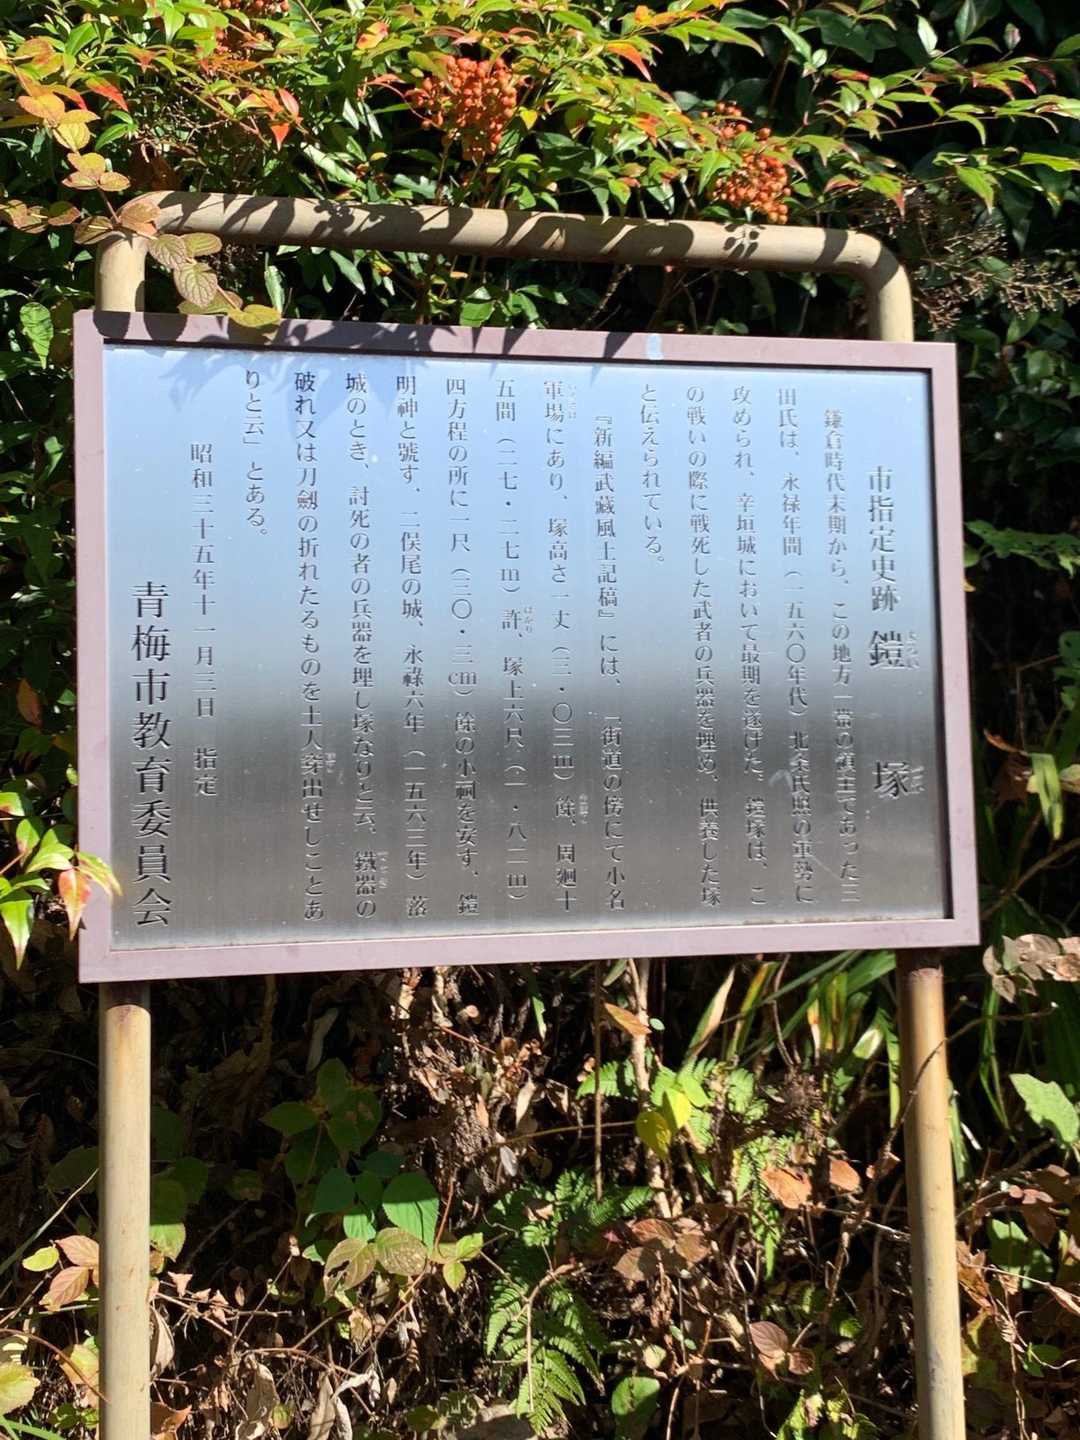 市指定史跡 鎧塚
鎌倉時代末期から、この地方一帯の領主であった三
田氏は、永禄年間（一五六〇年代）北条氏照の軍勢に
攻められ、辛垣城において最期を遂げた。鎧塚は、こ
の戦いの際に戦死した武者の兵器を埋め、供養した塚
と伝えられている。
『新編武藏風土記稿』には、「街道の傍にて小名
軍場にあり、塚高さ一丈（三・〇三ｍ）餘、周廻十
五間（二七・二七ｍ）許、塚上六尺（一・八二ｍ）
四方程の所に一尺（三〇・三㎝）餘の小祠を安す、鎧
明神と號す、二俣尾の城、永祿六年（一五六三年）落
城のとき、討死の者の兵器を埋し塚なりと云、鐵器の
破れ又は刀劔の折れたるものを土人穿出せしことあ
りと云」とある。
昭和三十五年十一月三日 指定
青梅市教育委員会